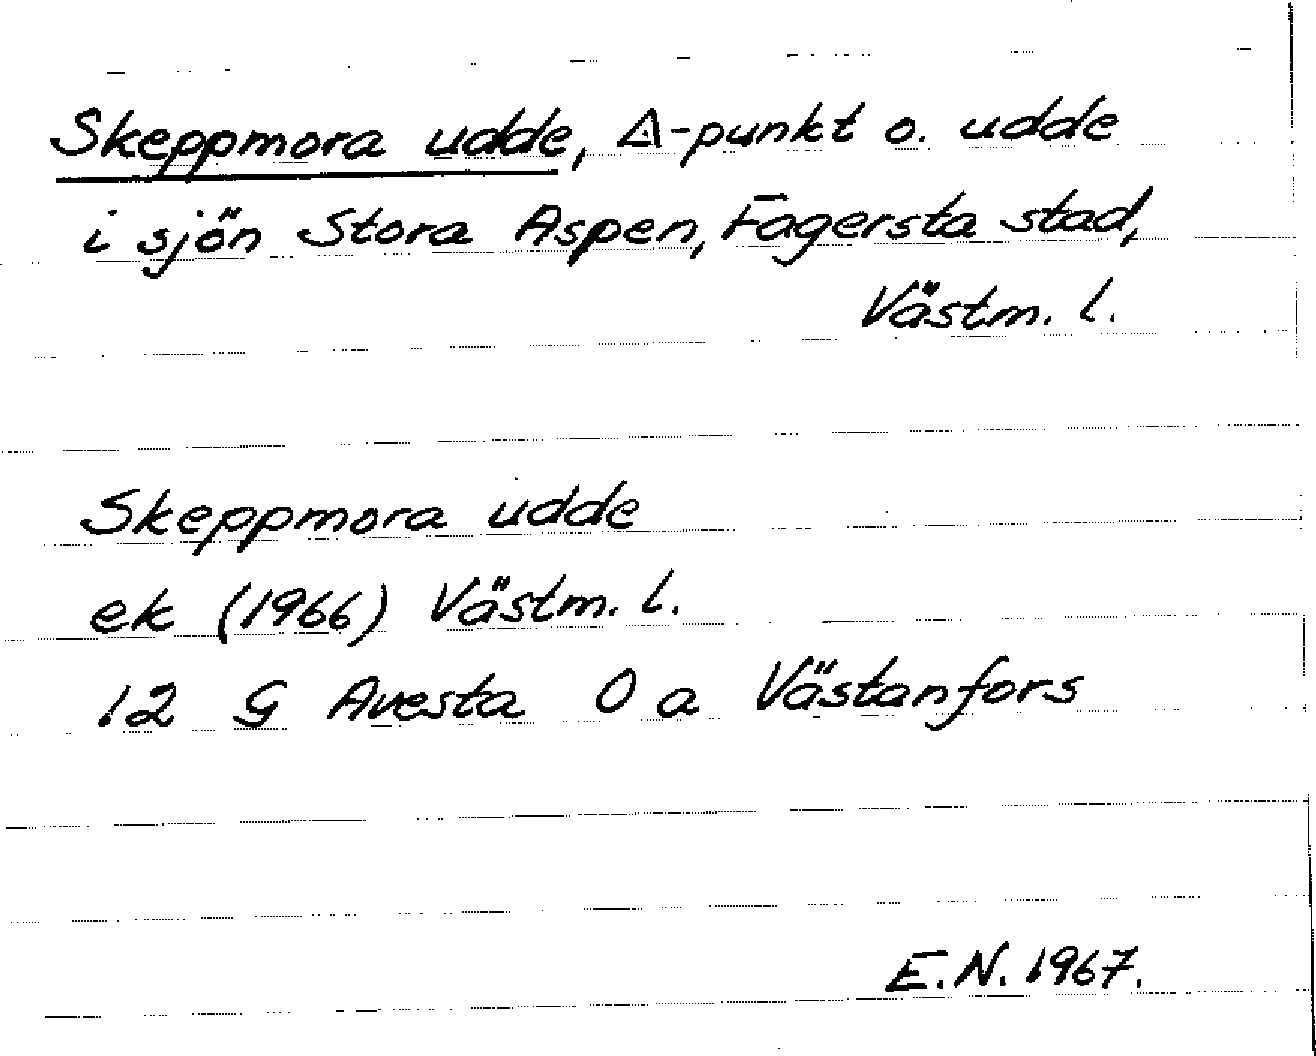 Skeppmora udde, △-punkt o. udde
i sjön Stora Aspen, Fagersta stad,
Västm. l.
Skeppmora udde
ek (1966) Västm. l.
12 G Avesta 0 a Västanfors
E.N. 1967.